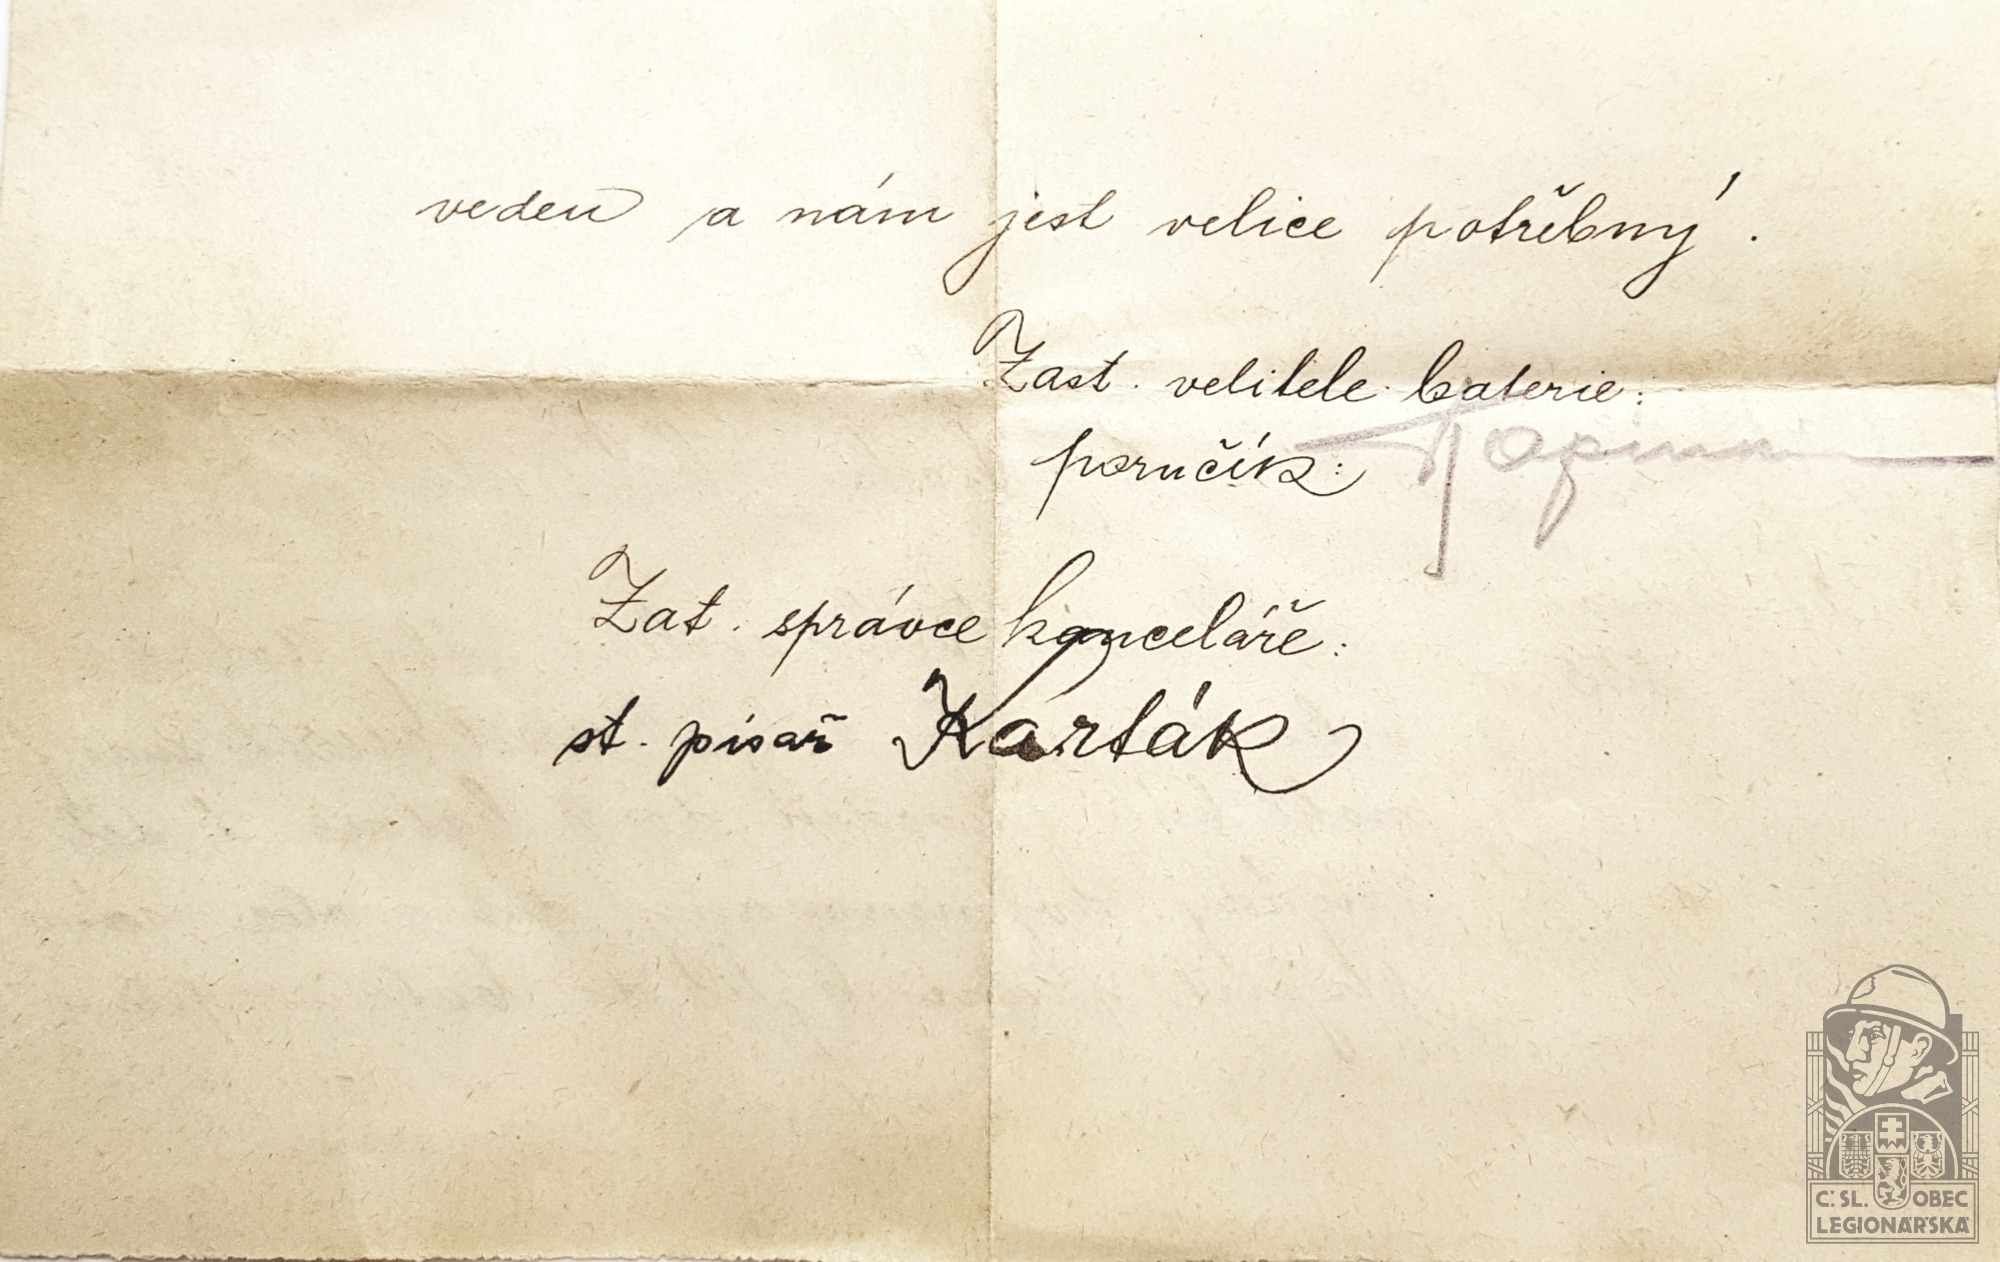 veden a nám jest velice potřebný.
Zast. velitele baterie:
poručík:
Zat. správce kanceláře:
st. písař Karták
Č.SL. OBEC
LEGIONÁŘSKÁ